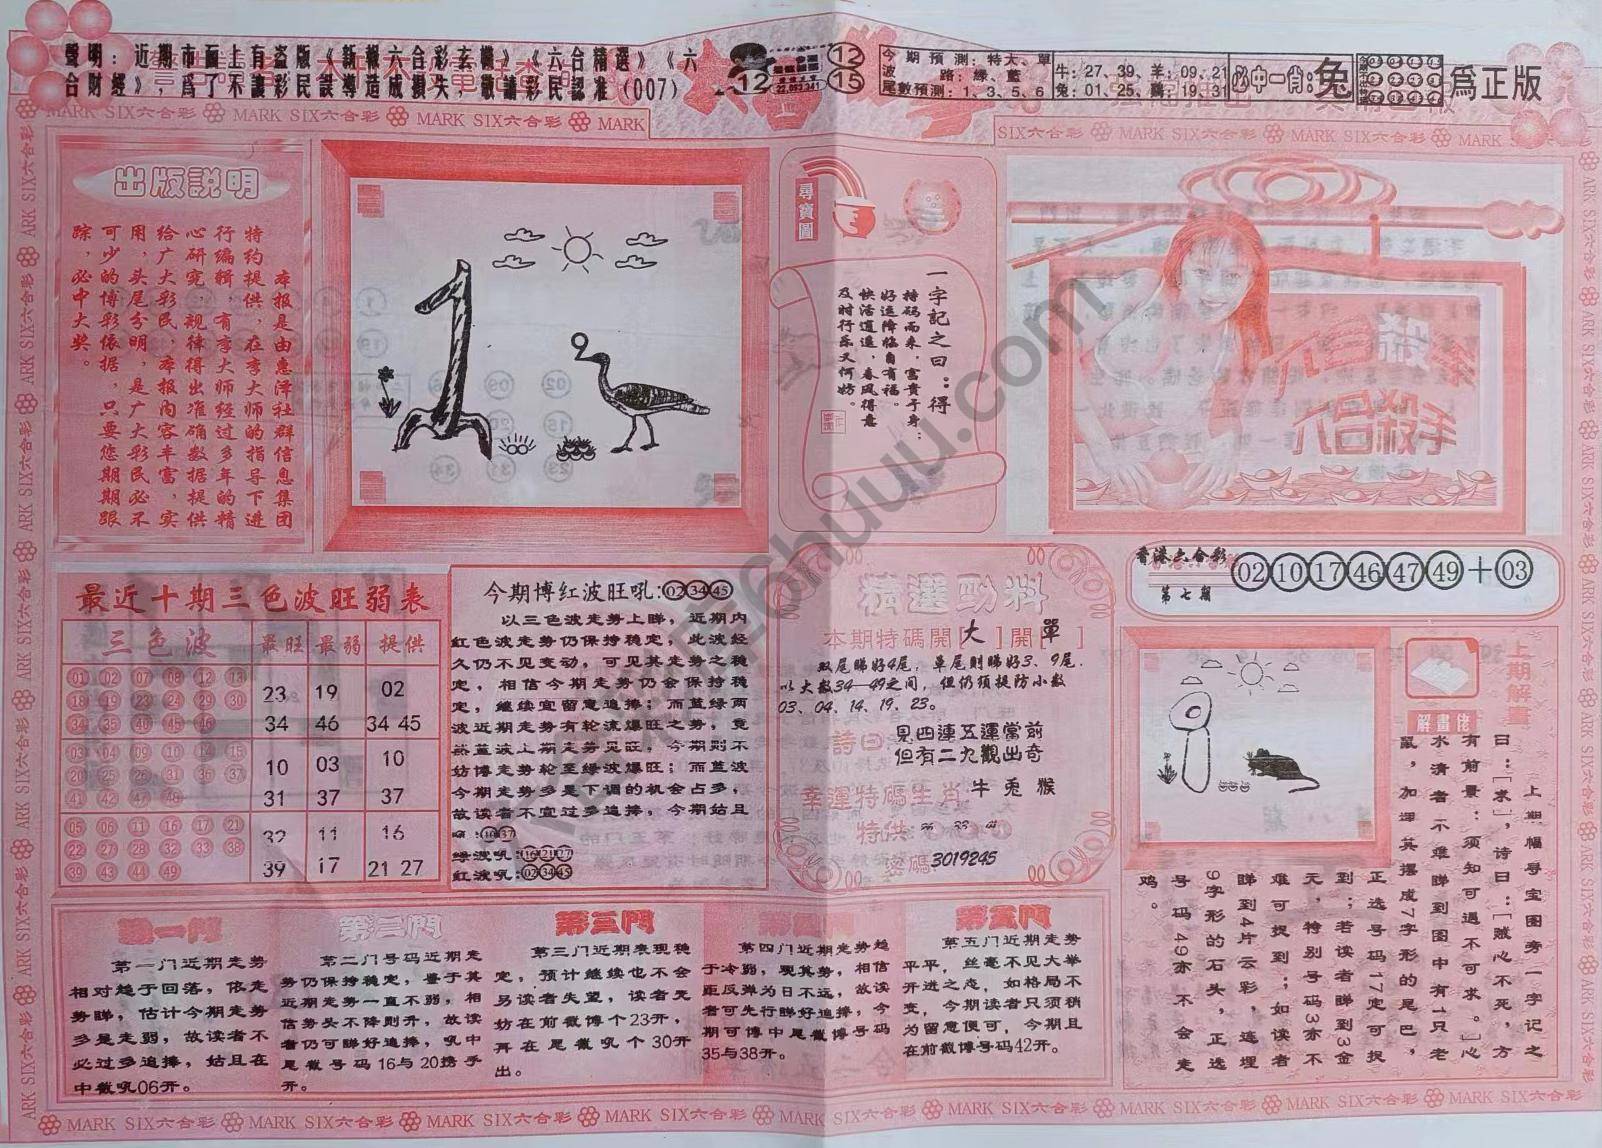 聲明：近期市面上有盜版《新報六合彩玄機》《六合精選》《六
合財經》，爲了不讓彩民誤導造成損失，敬請彩民認准（007）
12
12
15
今期預測：特大、單
波路：綠、藍
尾數預測：1、3、5、6
牛：27、39、羊：09、21
兔：01、25、鷄：19、31
必中一肖：兔
爲正版
MARK SIX六合彩 MARK SIX六合彩 MARK SIX六合彩 MARK
SIX六合彩 MARK SIX六合彩 MARK SIX六合彩 MARK SIX六合彩
出版説明
本报是由惠泽社群信息集团
特约提供，在李大师的指导下进
行编辑，有李大师经过多年的精
心研究，规律得出准确数据提供
给广大彩民，本报内容丰富，实
用，头尾分明，是广大彩民必不
可少的博彩依据，只要您期期跟
踪，必中大奖。
尋寶圖
一字記之曰：得
持码而来，富贵于身；
好运降临自有福。
快活逍遥，春风得意
及时行乐又何妨。
六合殺手
香港六合彩
第七期
02 10 17 46 47 49 + 03
最近十期三色波旺弱表
三色波 最旺 最弱 提供
01 02 07 08 12 13
18 19 23 24 29 30
34 35 40 45 46
23 19 02
34 46 34 45
03 04 09 10 14 15
20 25 26 31 36 37
41 42 47 48
10 03 10
31 37 37
05 06 11 16 17 21
22 27 28 32 33 38
39 43 44 49
32 11 16
39 17 21 27
今期博红波旺吼：02 34 45
以三色波走势上睇，近期内
红色波走势仍保持稳定，此波经
久仍不见变动，可见其走势之稳
定，相信今期走势仍会保持稳
定，继续宜留意追捧；而蓝绿两
波近期走势有轮流爆旺之势，竟
然蓝波上期走势见旺，今期则不
妨博走势轮至绿波爆旺；而蓝波
今期走势多是下调的机会占多，
故读者不宜过多追捧，今期姑且
吼：10 37
绿波吼：16 21 27
红波吼：02 34 45
精選勁料
本期特碼開[大]開[單]
双尾睇好4尾，單尾则睇好3、9尾.
以大数34—49之间，但仍须提防小数
03、04、14、19、23。
詩曰
見四連五運當前
但有二九觀出奇
幸運特碼生肖 牛 兔 猴
特供
密碼 3019245
上期解畫
解畫佬
上期幅寻宝图旁一字记之
曰：[求]，诗曰：[贼心不死，方
有前景：须知可遇不可求。]心
水清者不难睇到图中有1只老
鼠，加埋其摆成7字形的尾巴，
正选号码17定可捉
到；若读者睇到3金
元，特别号码3亦不
难可捉到；如读者
睇到4片云彩，连埋
9字形的石头，正选
号码49亦不会走
鸡。
第一門
第一门近期走势
相对趋于回落，依走
势睇，估计今期走势
多是走弱，故读者不
必过多追捧，姑且在
中截吼06开。
第二門
第二门号码近期走
势仍保持稳定，鉴于其
近期走势一直不弱，相
信势头不降则升，故读
者仍可睇好追捧，吼中
尾截号码16与20携手
开。
第三門
第三门近期表现稳
定，预计继续也不会
另读者失望，读者无
妨在前截博个23开，
再在尾截吼个30开
出。
第四門
第四门近期走势趋
于冷弱，观其势，相信
距反弹为日不远，故读
者可先行睇好追捧，今
期可博中尾截博号码
35与38开。
第五門
第五门近期走势
平平，丝毫不见大举
开进之态，如格局不
变，今期读者只须稍
为留意便可，今期且
在前截博号码42开。
MARK SIX六合彩 MARK SIX六合彩 MARK SIX六合彩 MARK SIX六合彩 MARK SIX六合彩 MARK SIX六合彩 MARK SIX六合彩 MARK SIX六合彩
6huuu.com